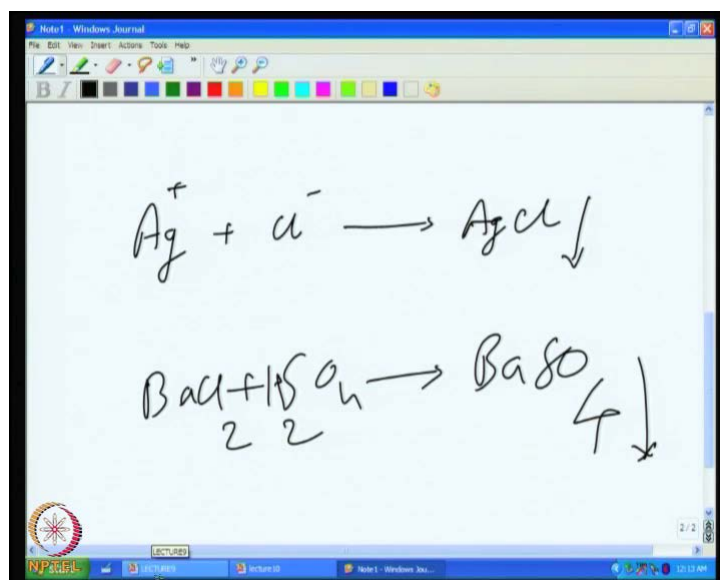 Note1 - Windows Journal
File Edit View Insert Actions Tools Help
B I
Ag⁺ + Cl⁻ → AgCl ↓
BaCl₂ + H₂SO₄ → BaSO₄ ↓
2/2
LECTURE9
NPTEL LECTURE9 lecture10 Note1 - Windows Jou... 12:13 AM